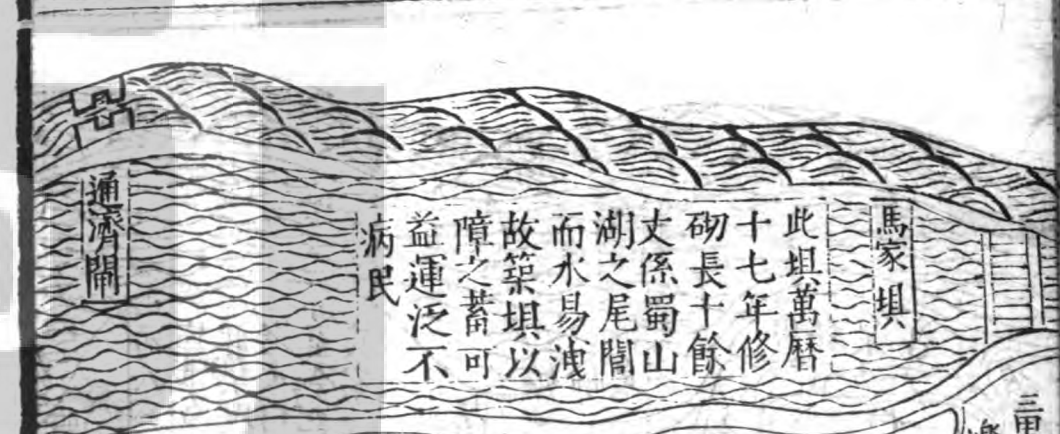 馬家垻
此垻萬曆
十七年修
砌長十餘
丈係蜀山
湖之尾閭
而水易洩
故築垻以
障之蓄可
益運泛不
病民
通濟閘